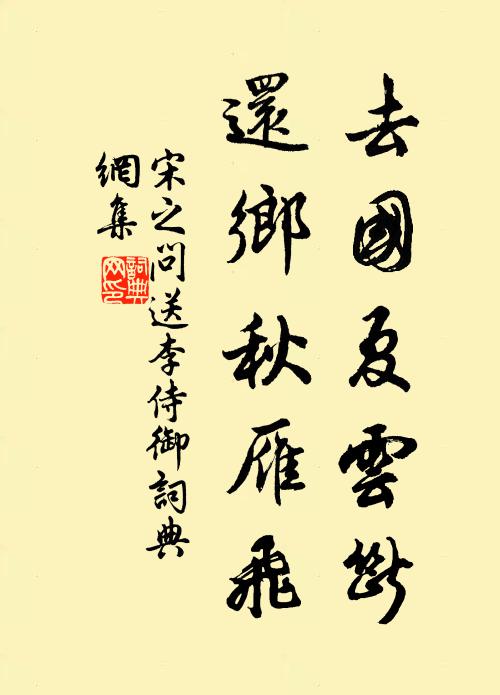 去國夏雲斷
還鄉秋雁飛
宋之問送李侍御詞典
網集
詞典網印